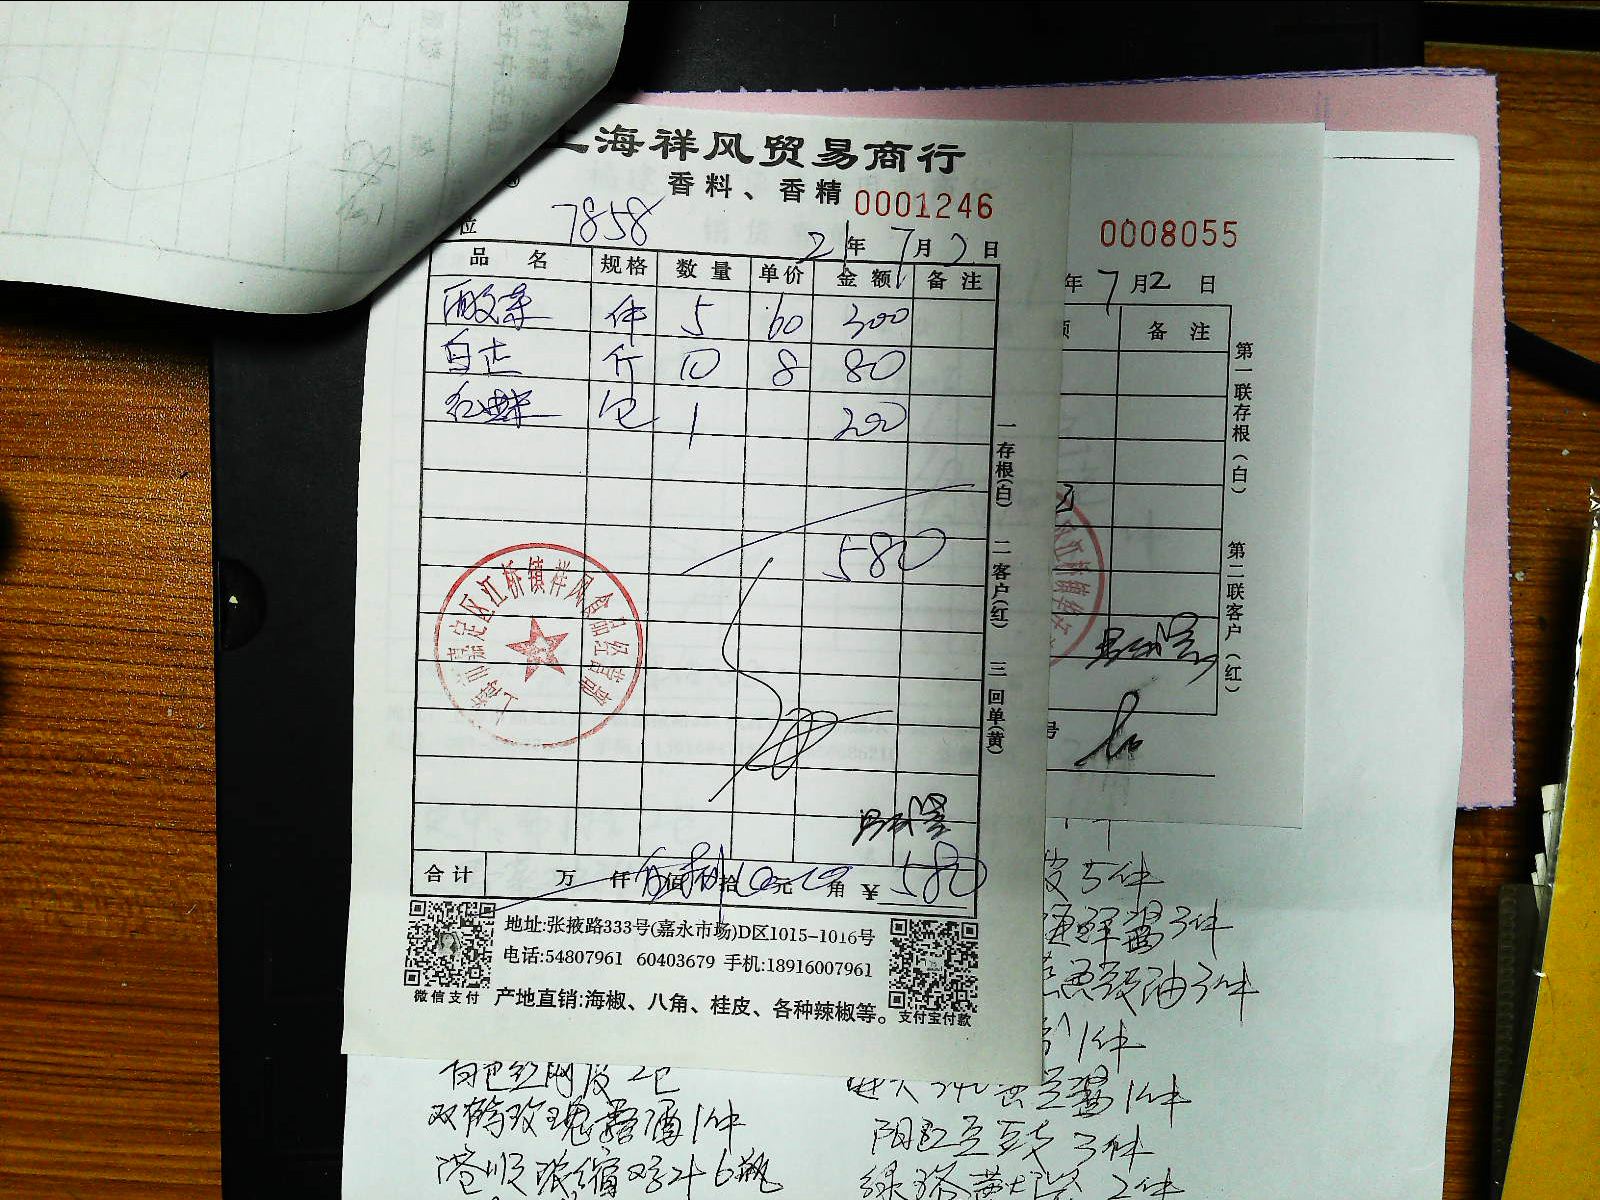 上海祥风贸易商行
香料、香精 0001246
位 7858 21年7月2日
品名 规格 数量 单价 金额 备注
酸菜 件 5 60 300
白芷 斤 10 8 80
红曲米 包 1 200
580
一存根(白) 二客户(红) 三回单(黄)
上海市嘉定区江桥镇祥风食品经营部
合计 万 仟 伍佰捌拾0元0角 ¥580
地址:张掖路333号(嘉永市场)D区1015-1016号
电话:54807961 60403679 手机:18916007961
微信支付 产地直销:海椒、八角、桂皮、各种辣椒等。 支付宝付款
0008055
年7月2日
额 备注
第一联存根(白) 第二联客户(红)
号
5件
海鲜酱3件
豉油3件
1件
双鹤玫瑰露酒1件
6瓶
豆酱1件
阳江豆豉3件
2件